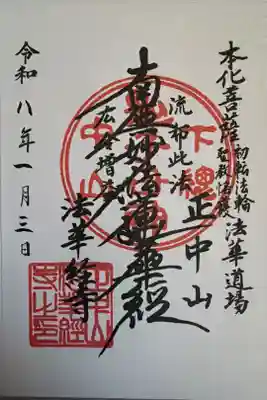 本化菩薩
初転法輪
法華道場
正中山
流布此法
南無妙法蓮華経
広令増益
法華経寺
令和八年一月三日
下總